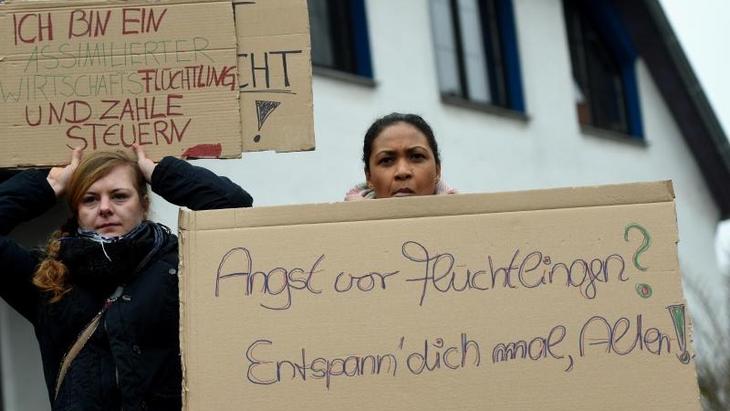 ICH BIN EIN
ASSIMILIERTER
WIRTSCHAFTSFLÜCHTLING
UND ZAHLE
STEUERN
CHT
!
Angst vor Flüchtlingen?
Entspann' dich mal, Alter!